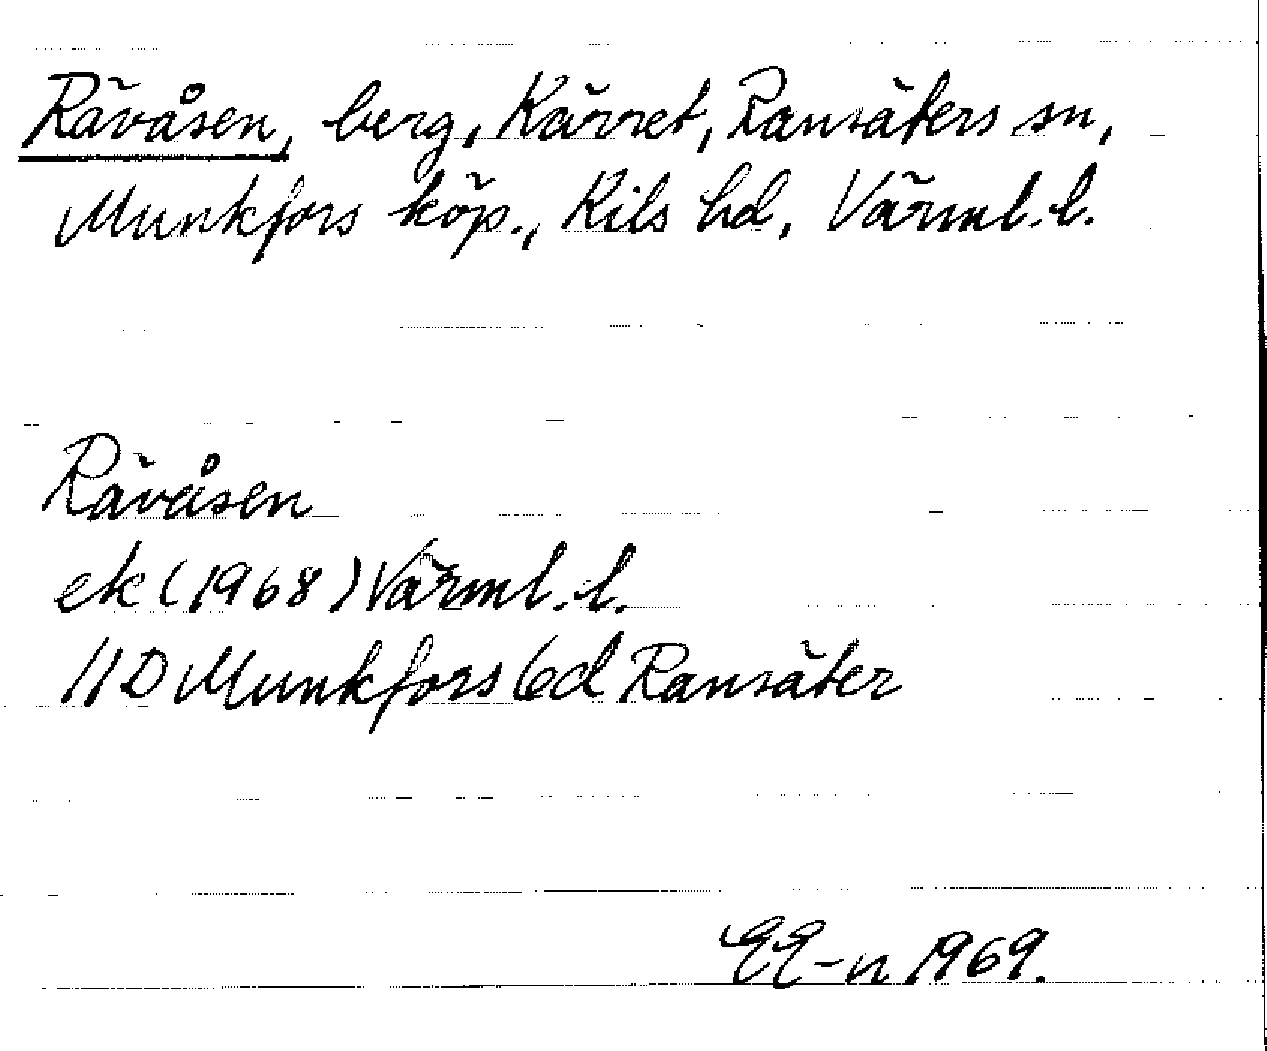 Rävåsen, berg, Kärret, Ransäters sn,
Munkfors köp., Kils hd, Värml. l.
Rävåsen
ek (1968) Värml. l.
11D Munkfors 6d Ransäter
EE-n 1969.